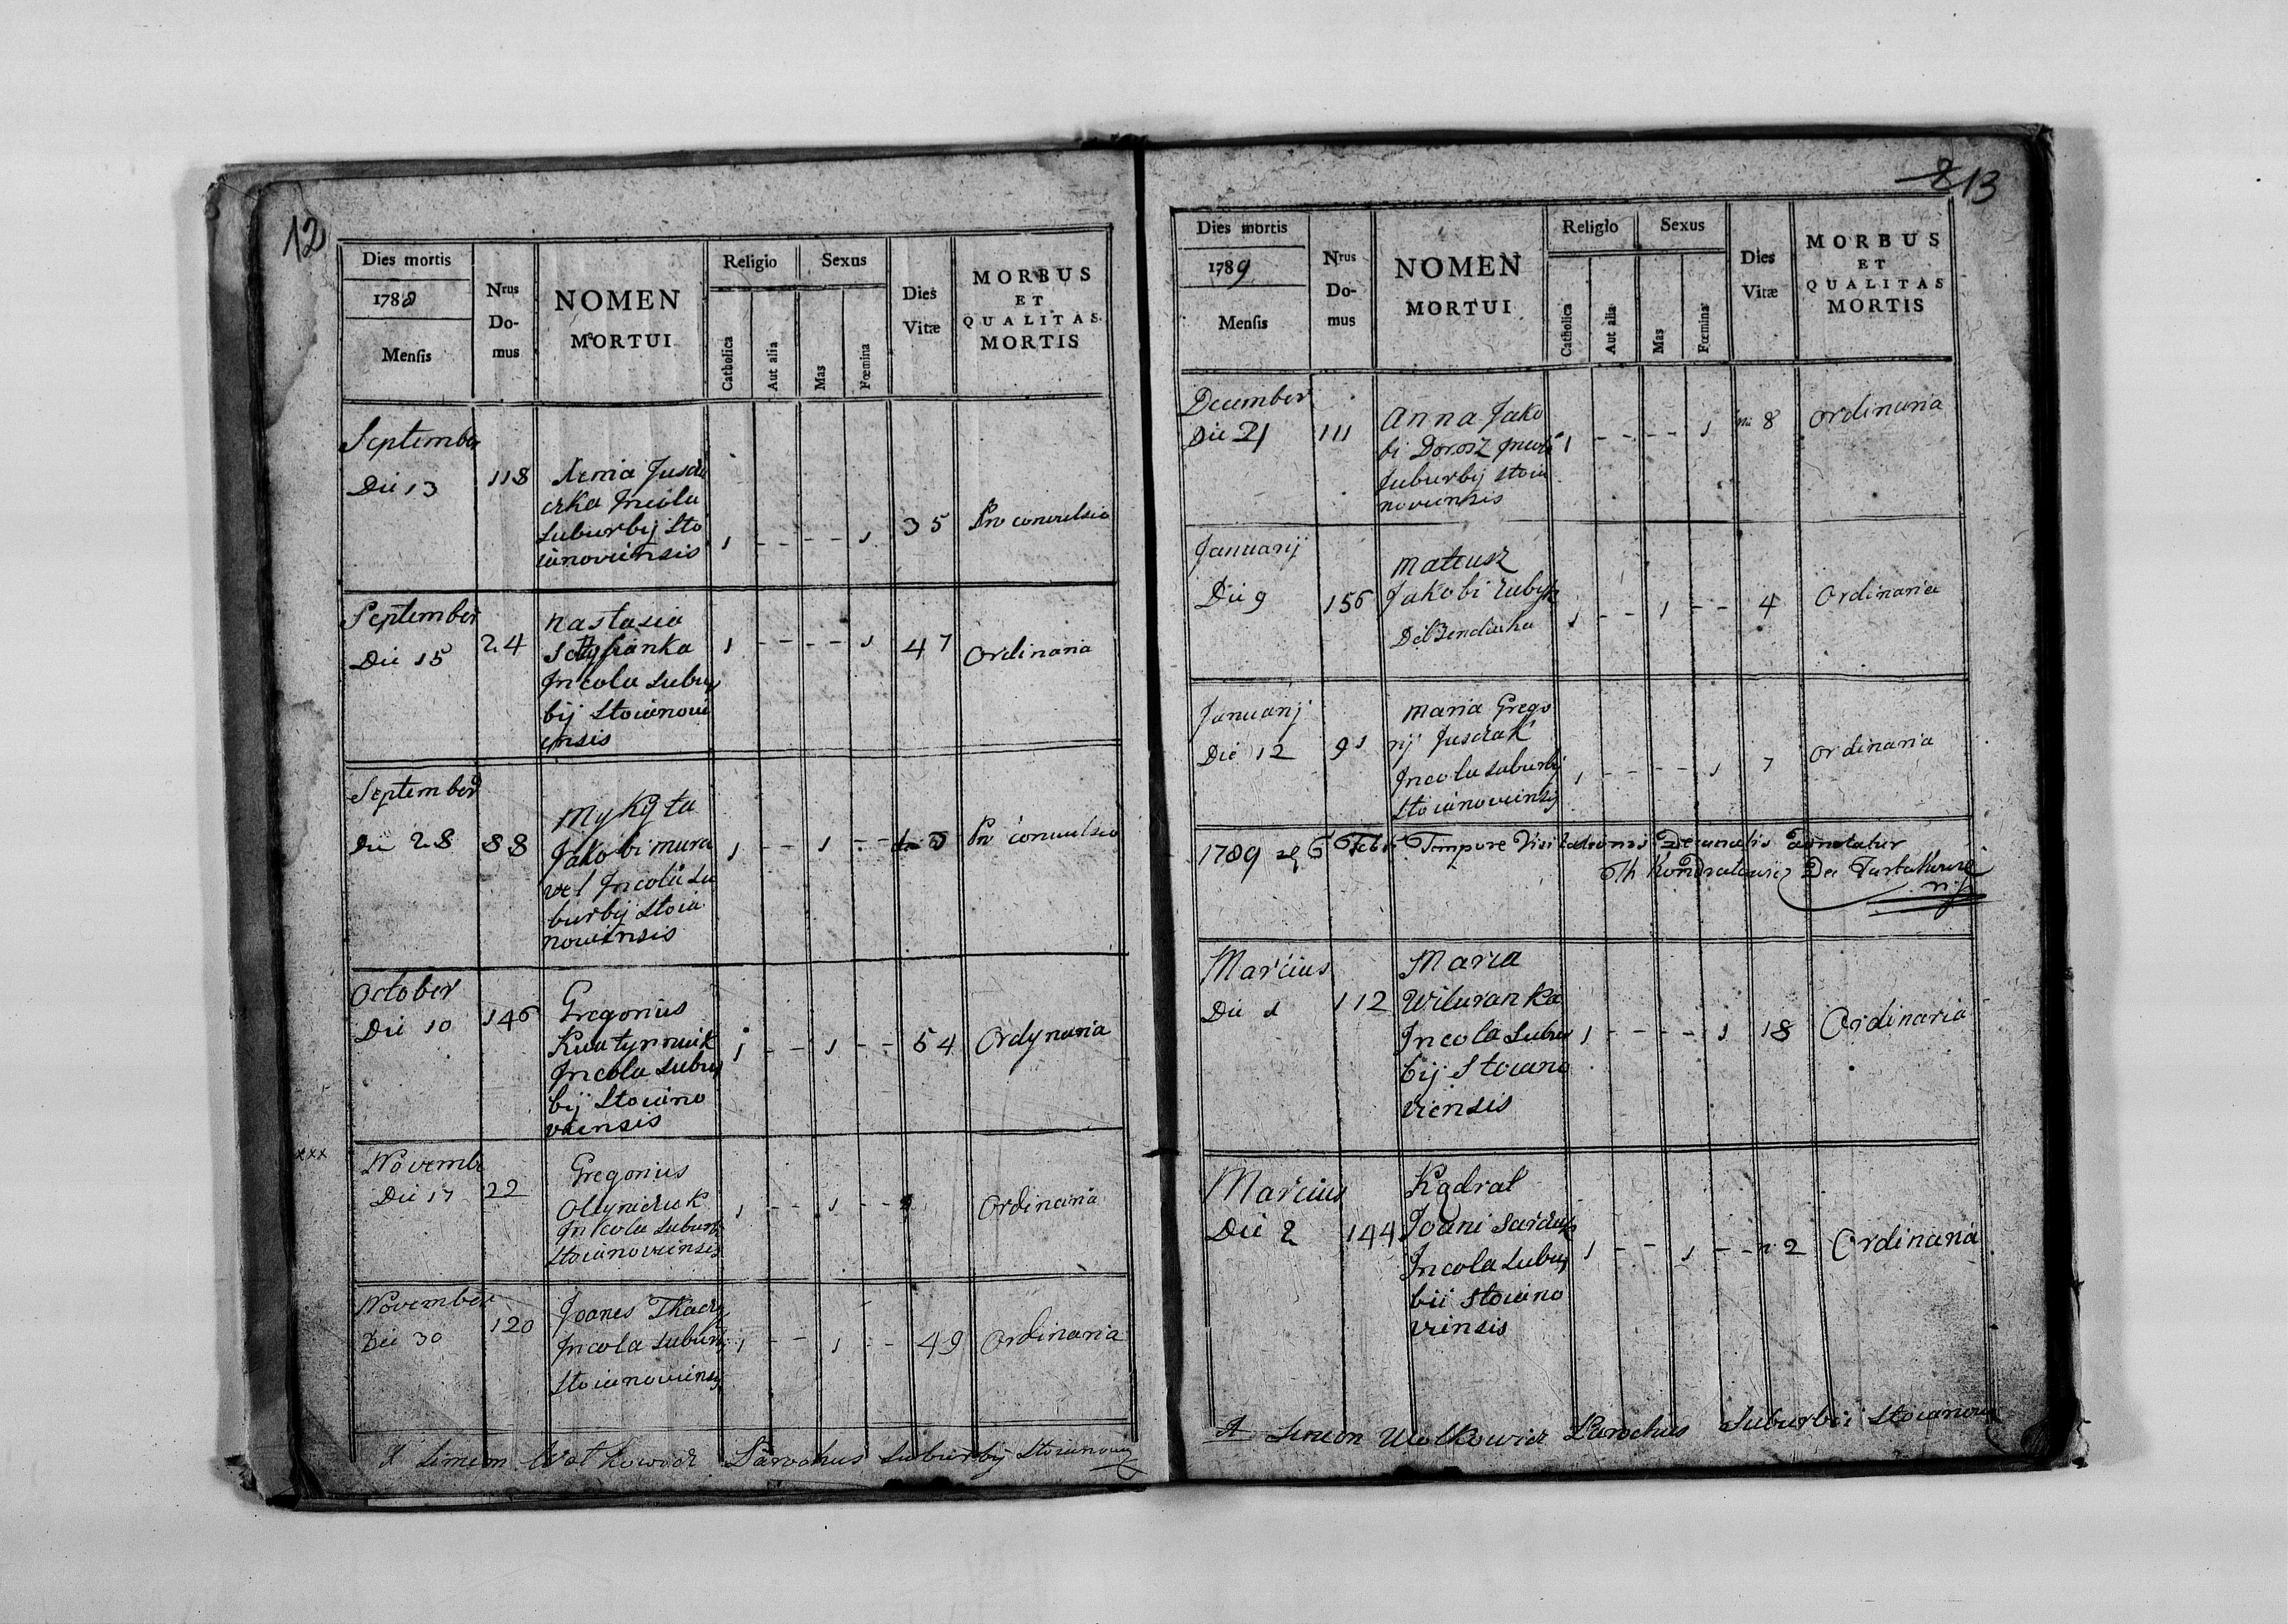 12
Dies mortis
1788
Mensis
Nrus
Do-
mus
NOMEN
MORTUI
Religio
Catholica
Aut alia
Sexus
Mas
Fœmina
Dies
Vitæ
MORBUS
ET
QUALITAS
MORTIS
September
Die 13
118
Xenia
Incola
Suburbij Sto
ianoviensis
1 - - - - 1
35
convulsio
September
Die 15
24
Nastasia
Incola Subur
bij Stoianovi
ensis
1 - - - - 1
47
Ordinaria
September
Die 28
88
Mykyta
Jakobi Mura
wel Incola Su
burbij Stoia
noviensis
1 - - 1 - -
convulsio
October
Die 10
146
Gregorius
Incola Subur
bij Stoiano
viensis
1 - - 1 - -
54
Ordynaria
xxx
Novembr
Die 17
22
Gregorius
Incola Suburb
Stoianoviensis
1 - - 1 - -
Ordinaria
November
Die 30
120
Joanes Tkacz
Incola Suburb
Stoianoviensis
1 - - 1 - -
49
Ordinaria
Simeon Wolkowicz Parochus Suburbij Stoianov
13
Dies mortis
1789
Mensis
Nrus
Do-
mus
NOMEN
MORTUI
Religio
Catholica
Aut alia
Sexus
Mas
Fœmina
Dies
Vitæ
MORBUS
ET
QUALITAS
MORTIS
December
Die 21
111
Anna Jako
bi Dorosz Incola
Suburbij Stoia
noviensis
1 - - - - 1
8
Ordinaria
Januarij
Die 9
156
Mateusz
Jakobi
1 - - 1 - -
4
Ordinaria
Januarij
Die 12
91
Maria Grego
rij
Incola Suburbij
Stoianoviensis
1 - - - - 1
7
Ordinaria
1789 6 Febr Tempore Visitationis Decanalis adnotatur
Th Kondratowicz Dec Tartakovie
Marcius
Die 1
112
Maria
Incola Subur
bij Stoiano
viensis
1 - - - - 1
18
Ordinaria
Marcius
Die 2
144
Kądrat
Joani
Incola Subur
bii Stoiano
viensis
1 - - 1 - -
2
Ordinaria
Simeon Wolkowicz Parochus Suburbii Stoianov